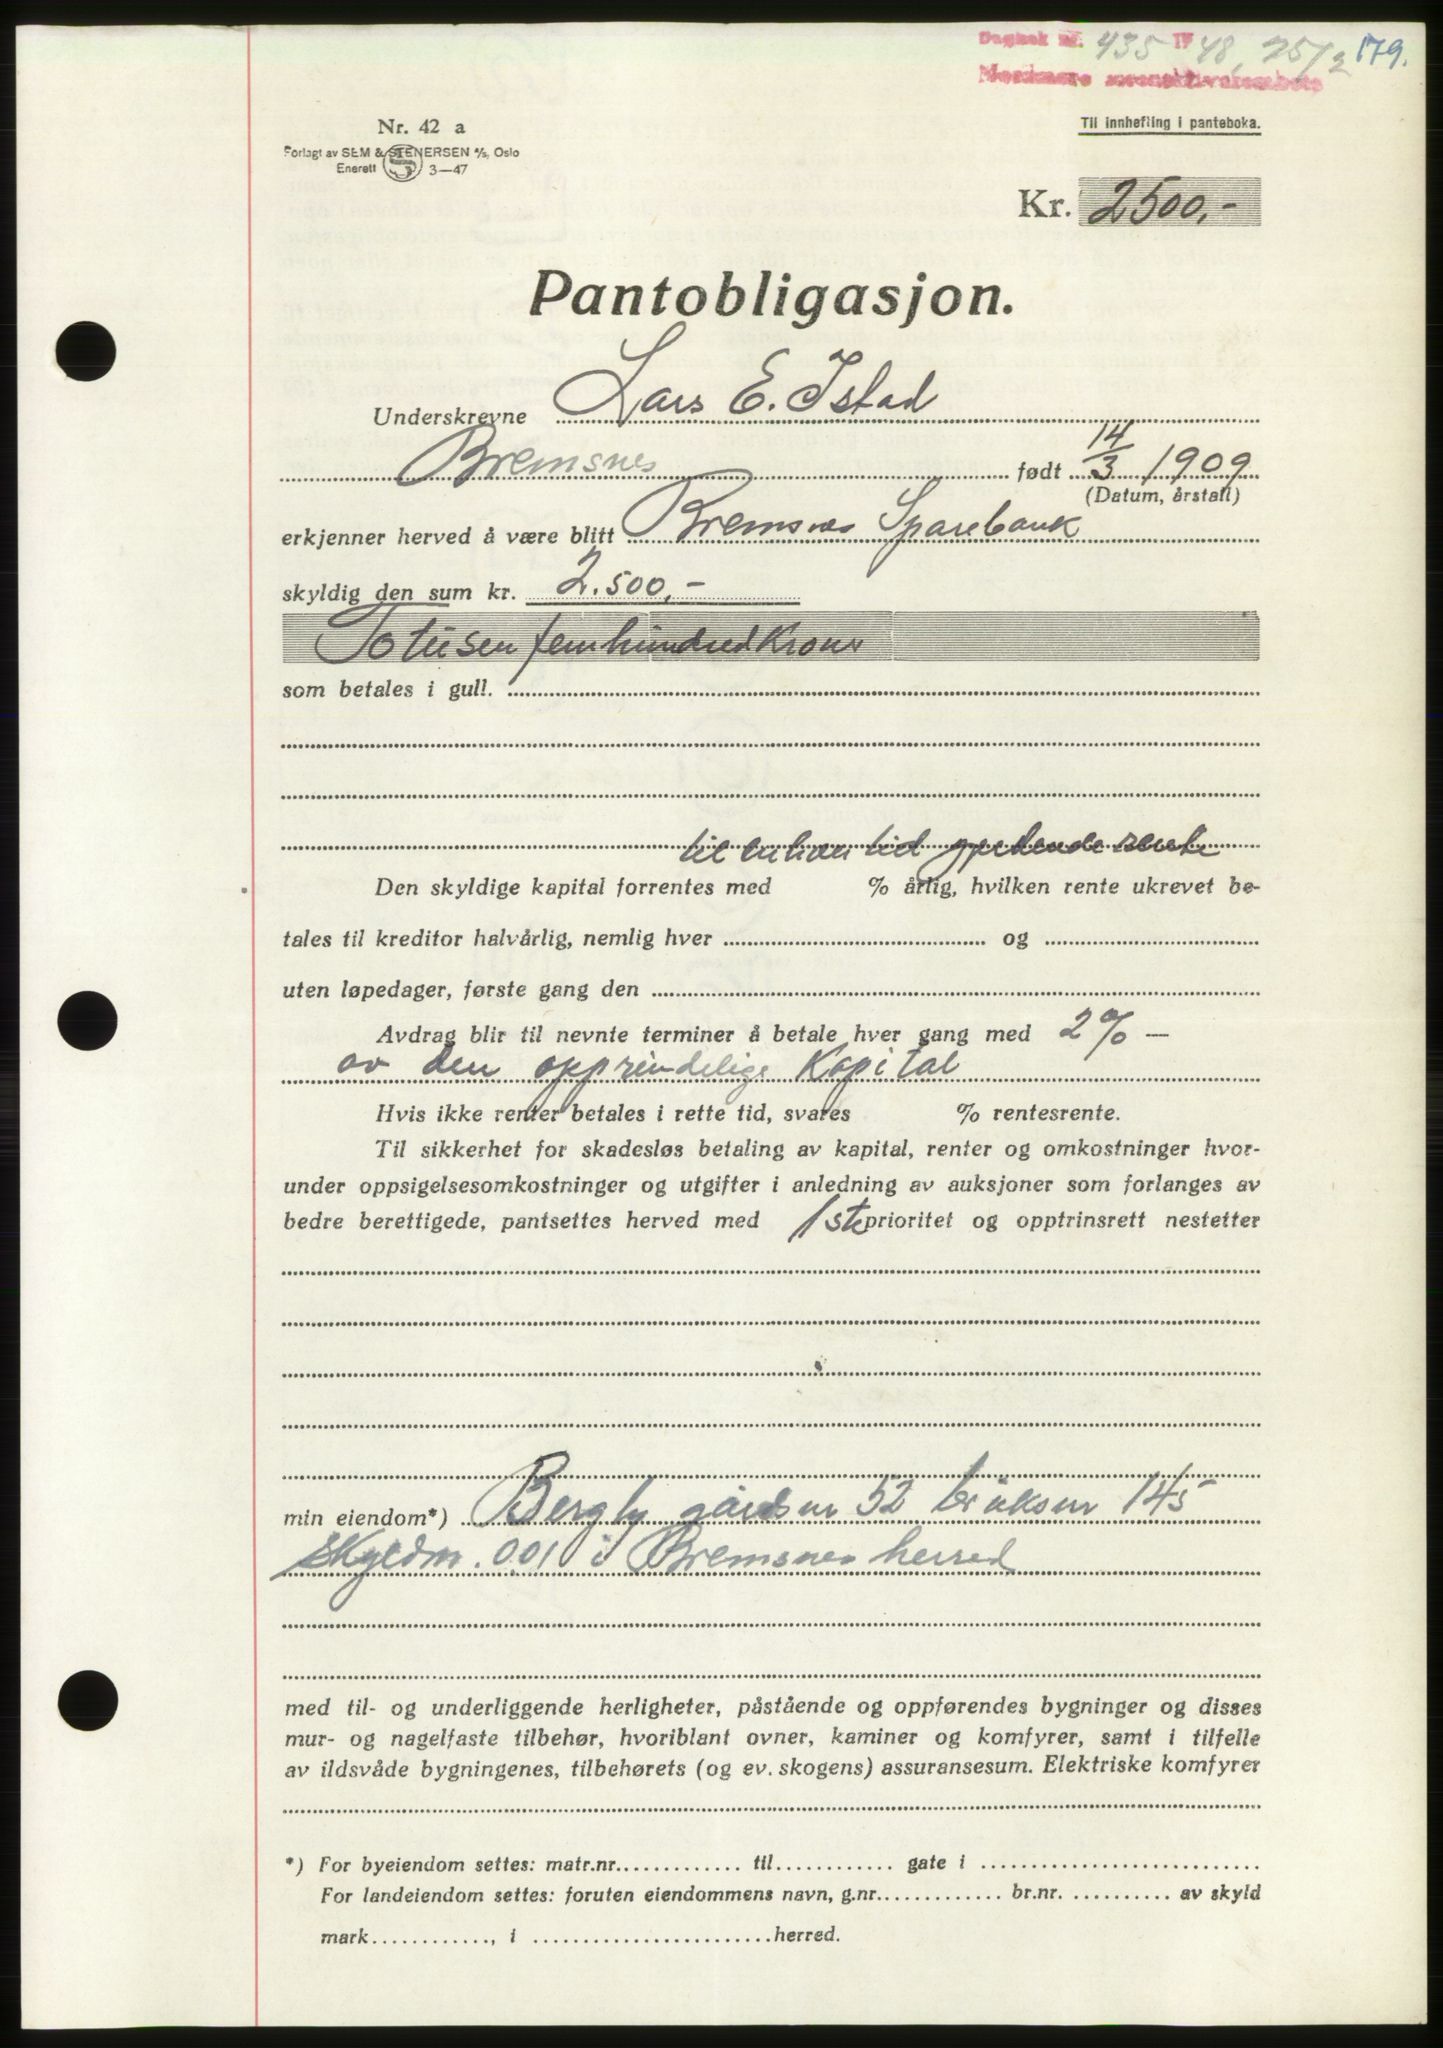 Dagbok nr. 435 19 48, 25/2 179.
Nordmøre sorenskriverembete
Nr. 42 a
Til innhefting i panteboka.
Forlagt av SEM & STENERSEN A/S, Oslo
Enerett S 3—47
Kr. 2500,-
Pantobligasjon.
Underskrevne Lars E. Istad
Bremsnes født 14/3 1909
(Datum, årstall)
erkjenner herved å være blitt Bremsnes Sparebank
skyldig den sum kr. 2.500,-
Totusen femhundred Kroner
som betales i gull.
til enhver tid gjeldende rente
Den skyldige kapital forrentes med % årlig, hvilken rente ukrevet be-
tales til kreditor halvårlig, nemlig hver og
uten løpedager, første gang den
Avdrag blir til nevnte terminer å betale hver gang med 2% —
av den opprindelige Kapital
Hvis ikke renter betales i rette tid, svares % rentesrente.
Til sikkerhet for skadesløs betaling av kapital, renter og omkostninger hvor-
under oppsigelsesomkostninger og utgifter i anledning av auksjoner som forlanges av
bedre berettigede, pantsettes herved med 1ste prioritet og opptrinsrett nestetter
min eiendom*) Bergly gårdsnr 52 bruksnr 145
Skyldm. 0.01 i Bremsnes herred
med til- og underliggende herligheter, påstående og oppførendes bygninger og disses
mur- og nagelfaste tilbehør, hvoriblant ovner, kaminer og komfyrer, samt i tilfelle
av ildsvåde bygningenes, tilbehørets (og ev. skogens) assuransesum. Elektriske komfyrer
*) For byeiendom settes: matr.nr. til gate i
For landeiendom settes: foruten eiendommens navn, g.nr. br.nr. av skyld
mark , i herred.